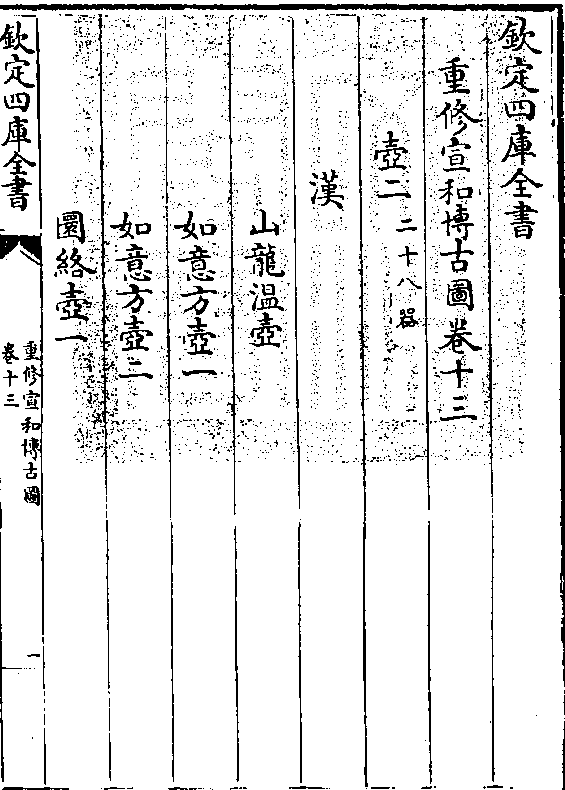 欽定四庫全書
重修宣和博古圖卷十三
壺二二十八器
漢
山龍温壺
如意方壺一
如意方壺二
圜絡壺一
欽定四庫全書
重修宣和博古圖
卷十三
一